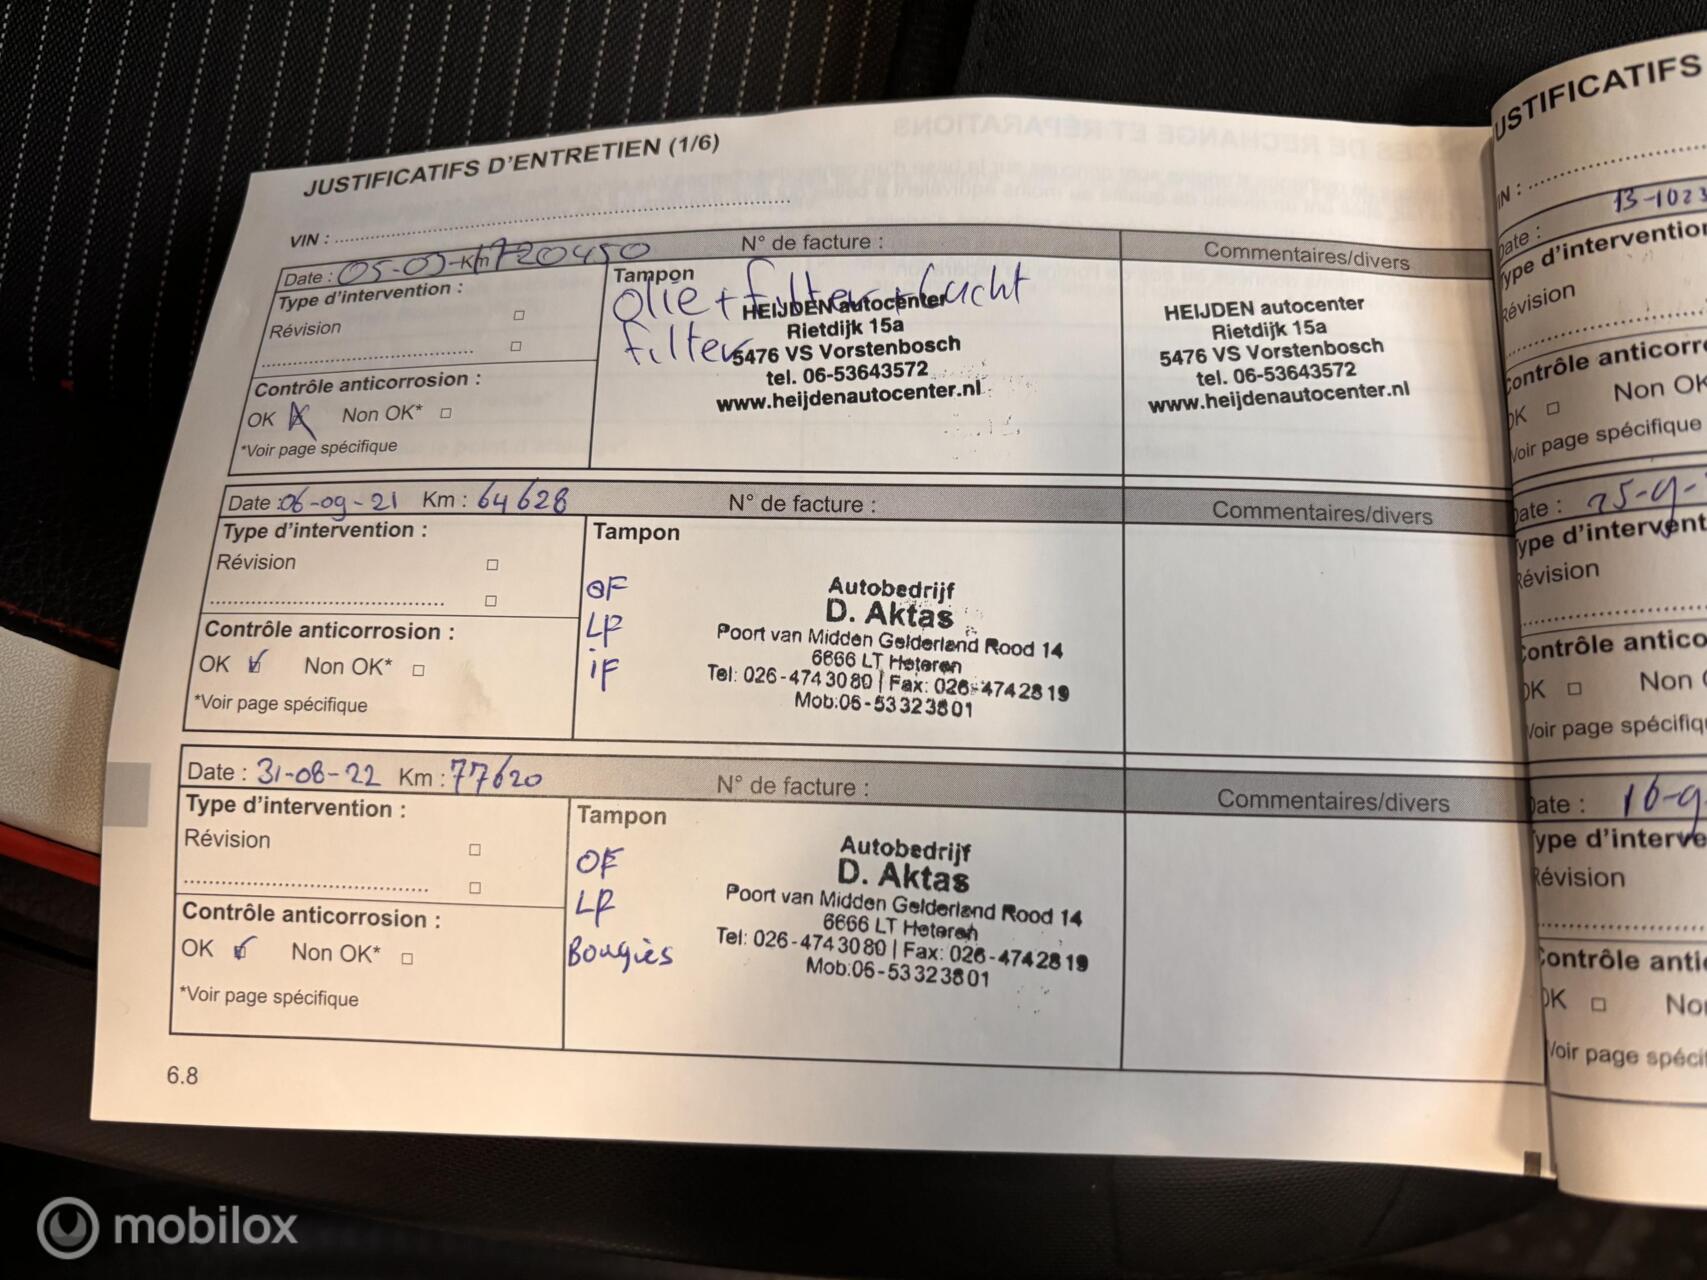 JUSTIFICATIFS D'ENTRETIEN (1/6)
VIN :
Date : Km N° de facture : Commentaires/divers
Type d'intervention :
Révision
Contrôle anticorrosion :
OK Non OK*
*Voir page spécifique
Tampon
olie + filter + lucht
filter
HEIJDEN autocenter
Rietdijk 15a
5476 VS Vorstenbosch
tel. 06-53643572
www.heijdenautocenter.nl
HEIJDEN autocenter
Rietdijk 15a
5476 VS Vorstenbosch
tel. 06-53643572
www.heijdenautocenter.nl
Date : 06-09-21 Km : 64628 N° de facture : Commentaires/divers
Type d'intervention :
Révision
Contrôle anticorrosion :
OK Non OK*
*Voir page spécifique
Tampon
OF
LF
iF
Autobedrijf
D. Aktas
Poort van Midden Gelderland Rood 14
6666 LT Heteren
Tel: 026-4743080 | Fax: 026-4742819
Mob:06-53323801
Date : 31-08-22 Km : 77620 N° de facture : Commentaires/divers
Type d'intervention :
Révision
Contrôle anticorrosion :
OK Non OK*
*Voir page spécifique
Tampon
OF
LF
Bougiès
Autobedrijf
D. Aktas
Poort van Midden Gelderland Rood 14
6666 LT Heteren
Tel: 026-4743080 | Fax: 026-4742819
Mob:06-53323801
6.8
USTIFICATIFS
IN :
Date : 13-1023
Type d'intervention
Révision
Contrôle anticorro
OK Non OK
Voir page spécifique
Date :
Type d'intervent
Révision
Contrôle anticorro
OK Non
Voir page spécifiq
Date :
Type d'interve
Révision
Contrôle anti
OK No
Voir page spéci
mobilox